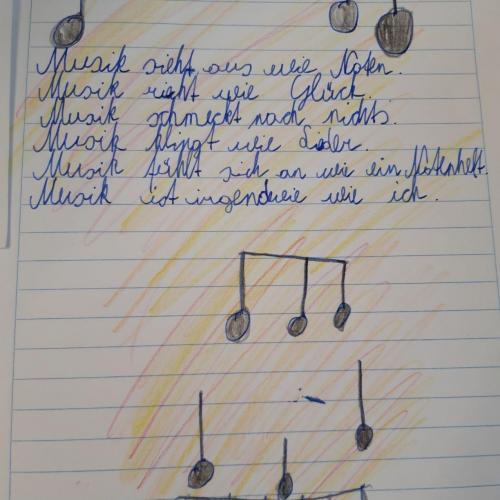 Musik sieht aus wie Noten.
Musik richt wie Glück.
Musik schmeckt nach nichts.
Musik klingt wie Lider.
Musik fühlt sich an wie ein Notenheft.
Musik ist irgendwie wie ich.